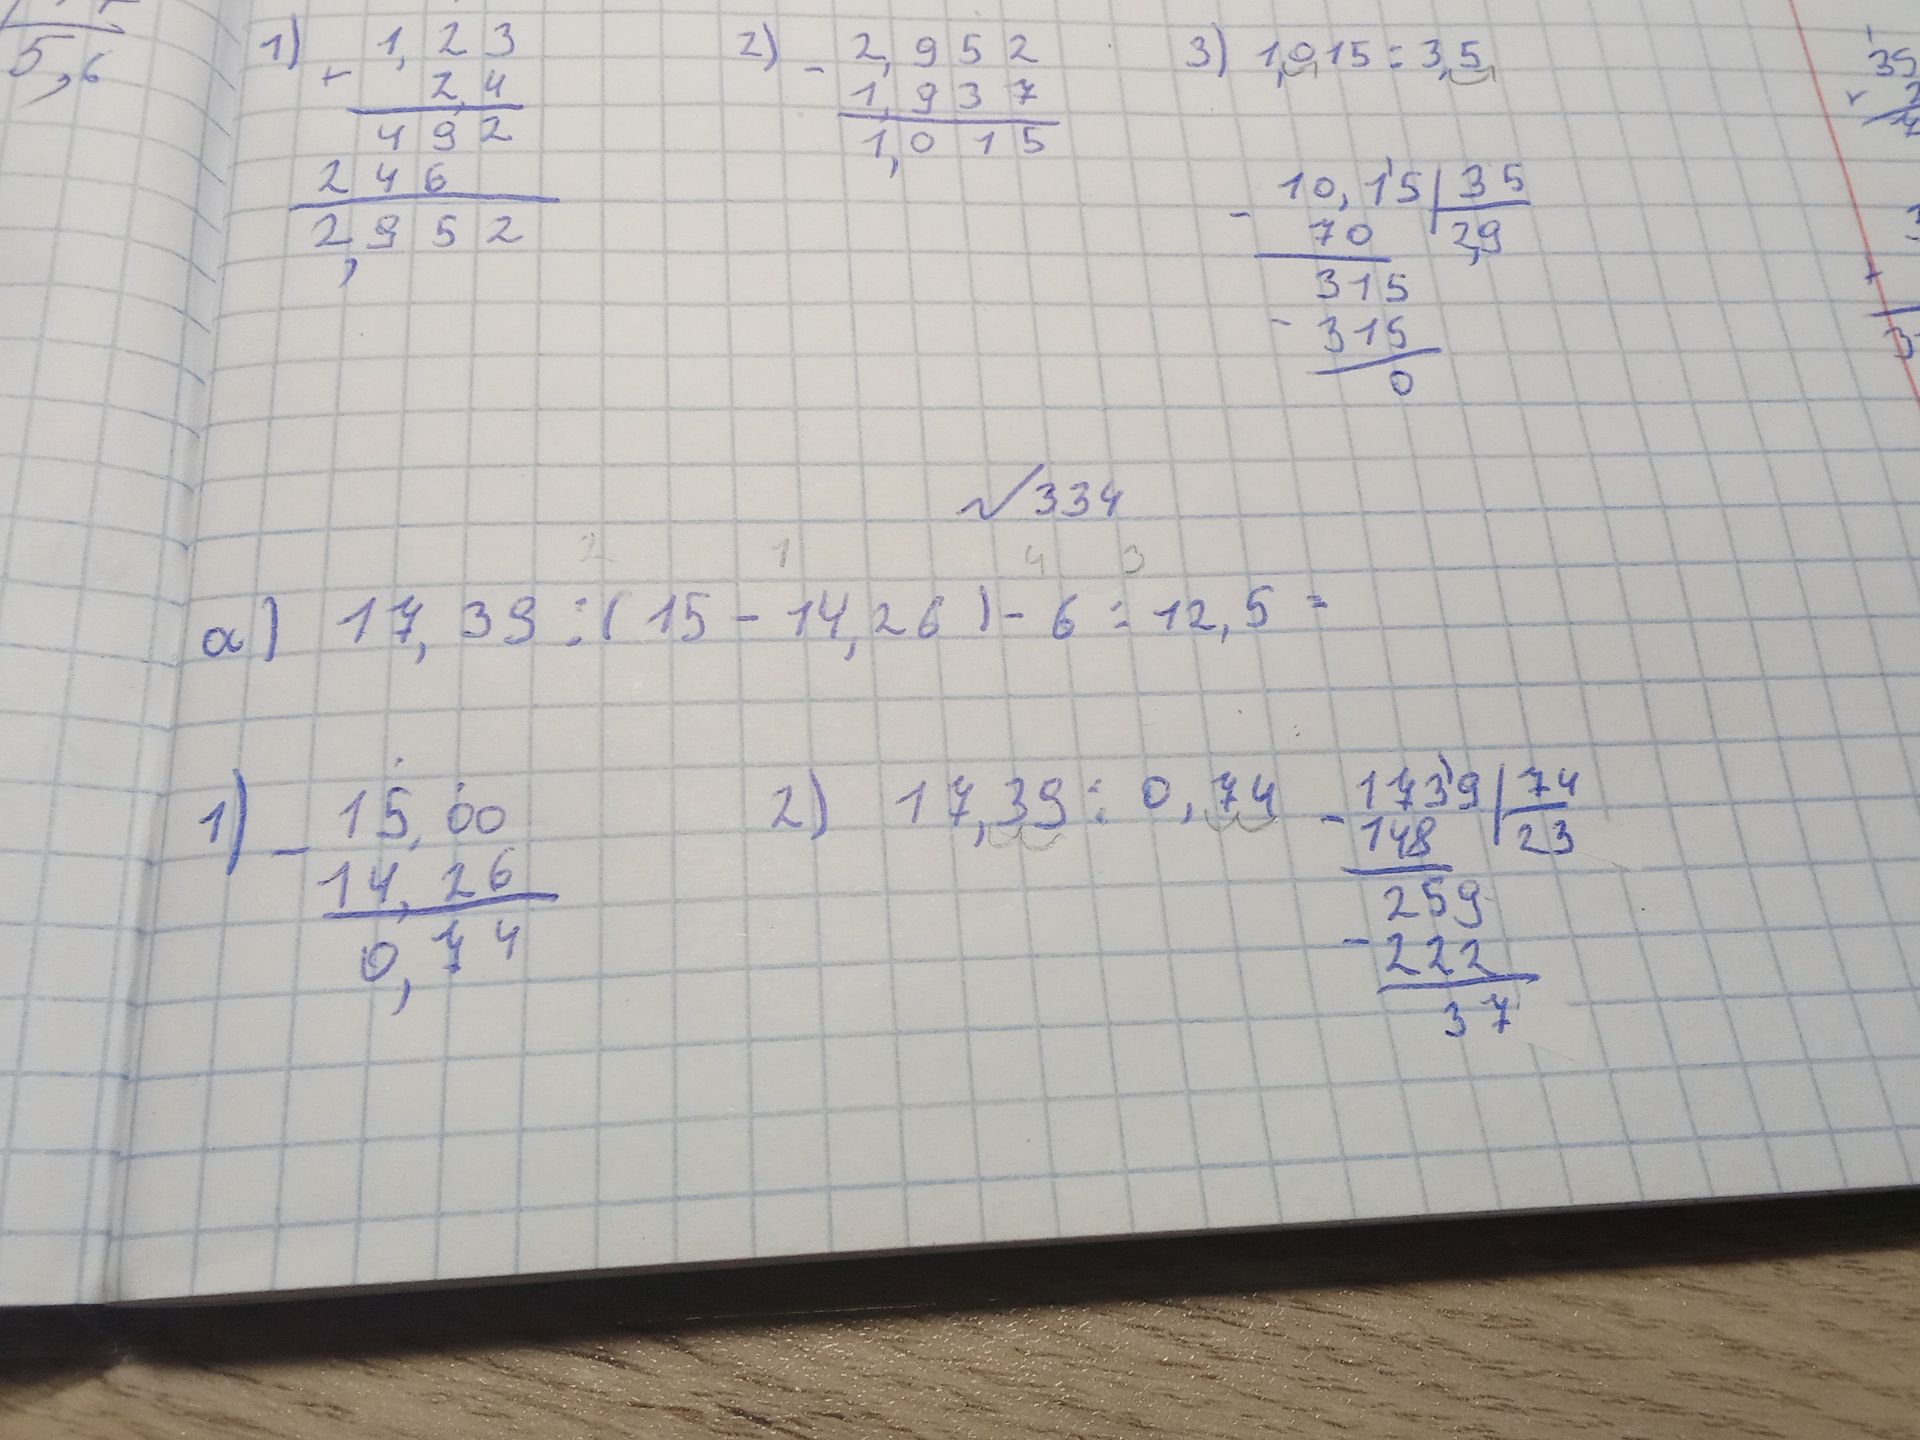 5,6
1) 1,23
× 2,4
492
246
2,952
2) - 2,952
1,937
1,015
3) 1,015 : 3,5
- 10,15 | 35
70 2,9
315
- 315
0
№334
2 1 4 3
а) 17,39 : (15 - 14,26) - 6 : 12,5 =
1) - 15,00
14,26
0,74
2) 17,39 : 0,74
- 1739 | 74
148 23
259
- 222
37